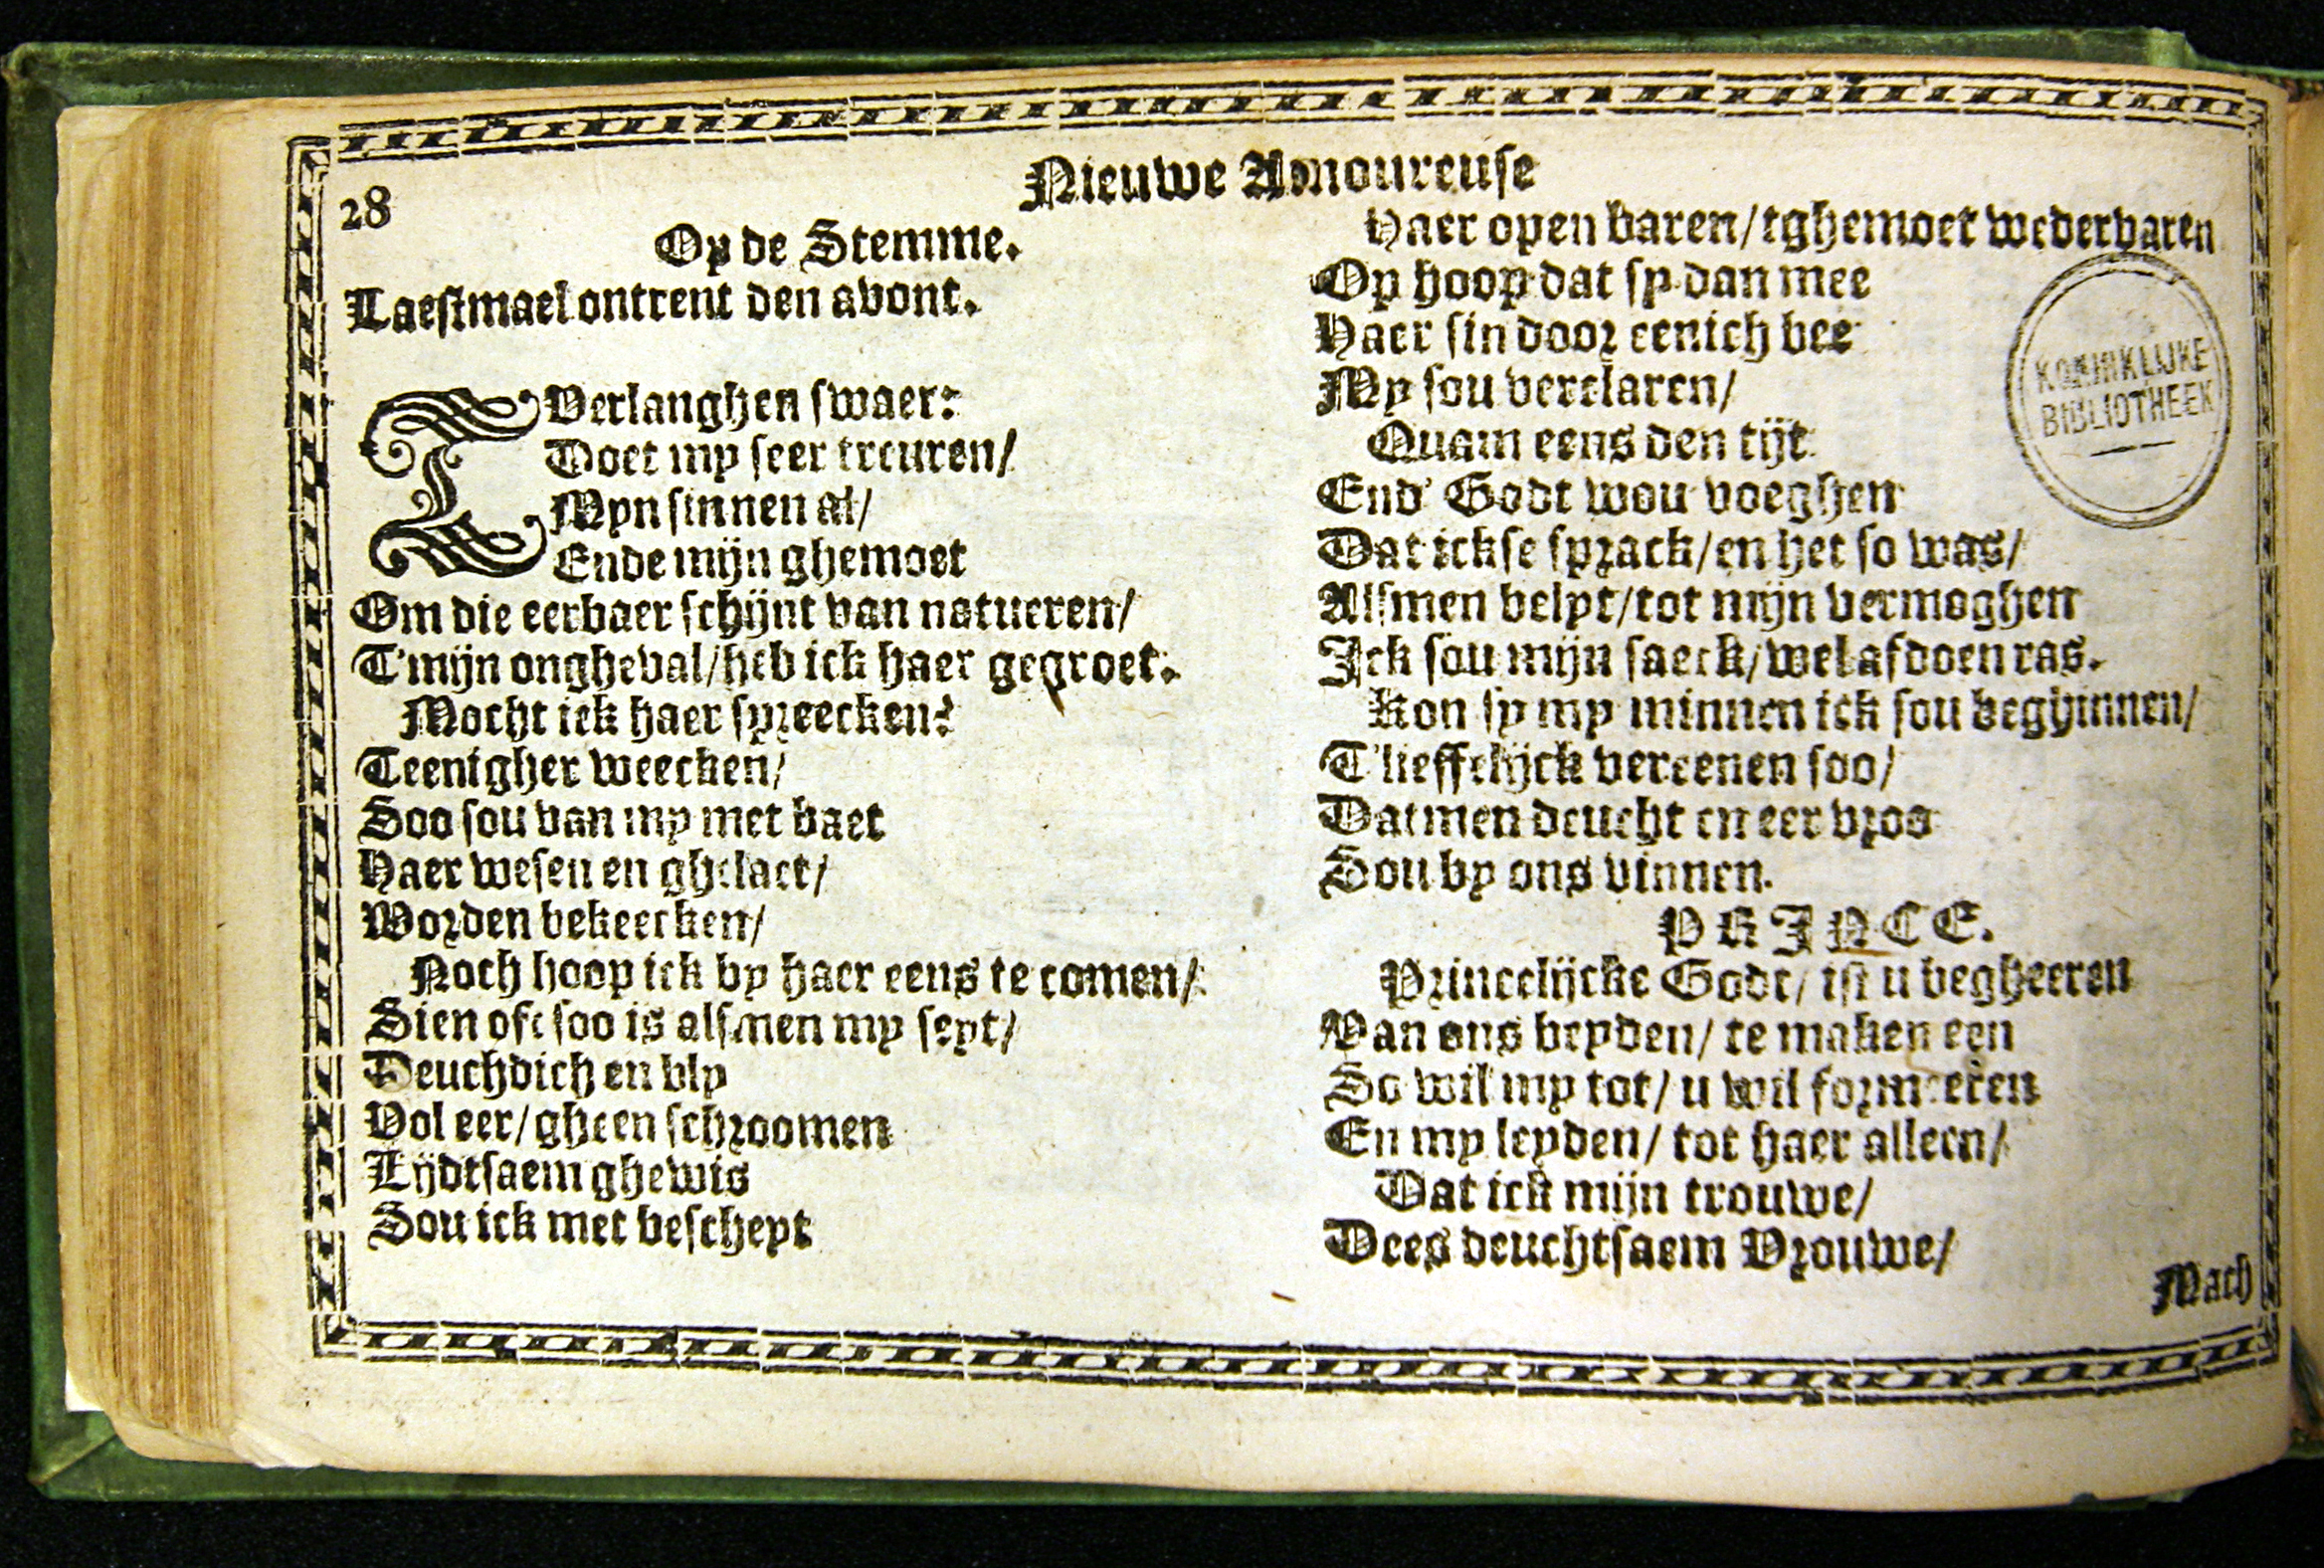 28
Nieuwe Amoureuse
Op de Stemme.
Laestmael ontrent den avont.
T Verlanghen swaer:
Doet my seer treuren/
Myn sinnen al/
Ende mijn ghemoet
Om die eerbaer schijnt van natueren/
T'mijn ongheval/heb ick haer gegroet.
Mocht ick haer spreecken?
Teenigher weecken/
Soo sou van my met baet
Haer wesen en ghelaet/
Worden bekeecken/
Noch hoop ick by haer eens te comen/
Sien oft soo is alsmen my seyt/
Deuchdich en bly
Vol eer/gheen schroomen
Lijdtsaem ghewis
Sou ick met bescheyt
Haer open baren/tghemoet wedervaren
Op hoop dat sy dan mee
Haer sin door eenich bee
My sou verclaren/
Quam eens den tijt
End' Godt wou voeghen
Dat ickse sprack/en het so was/
Alsmen belyt/tot mijn vermoghen
Ick sou mijn saeck/wel afdoen ras.
Kon sy my minnen ick sou beghinnen/
T'lieffelijck vereenen soo/
Datmen deucht en eer vroo
Sou by ons vinnen.
PRINCE.
Princelijcke Godt/ ist u begheeren
Van ons beyden/ te maken een
So wil my tot/ u wil formeeren
En my leyden/ tot haer alleen/
Dat ick mijn trouwe/
Dees deuchtsaem Vrouwe/
Mach
KONINKLIJKE
BIBLIOTHEEK